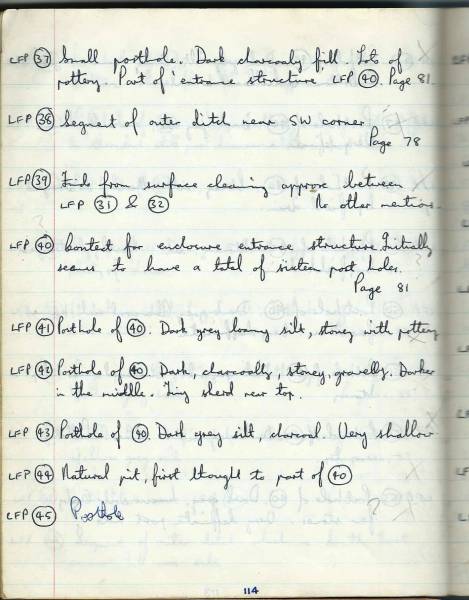 LFP 37 Small posthole. Dark charcoaly fill. Lots of
pottery. Part of entrance structure LFP 40. Page 81.
LFP 38 Segment of outer ditch near SW corner.
Page 78
LFP 39 Finds from surface cleaning approx between
LFP 31 & 32 No other mention.
LFP 40 Context for enclosure entrance structure. Initially
seems to have a total of sixteen post holes.
Page 81
LFP 41 Posthole of 40. Dark grey loamy silt, stoney with pottery
LFP 42 Posthole of 40. Dark, charcoally, stoney, gravelly. Darker
in the middle. Tiny sherd near top.
LFP 43 Posthole of 40. Dark grey silt, charcoal. Very shallow
LFP 44 Natural pit, first thought to part of 40
LFP 45 Posthole
114